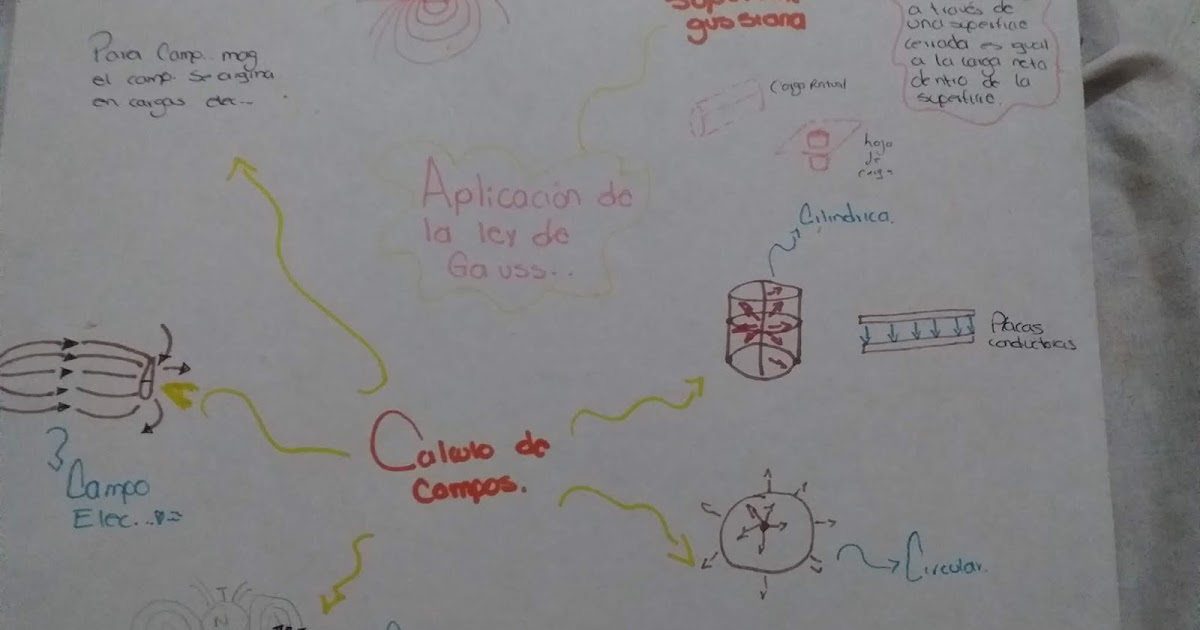 gussiana
a través de
una superficie
cerrada es igual
a la carga neta
dentro de la
superficie.
Para Camp.. mag
el camp. se origina
en cargas elec...
Carga Puntual
hoja
de
carga
Aplicación de
la ley de
Gauss...
Cilindrica.
Placas
conductoras
Calculo de
campos.
Campo
Elec...
Circular.
N